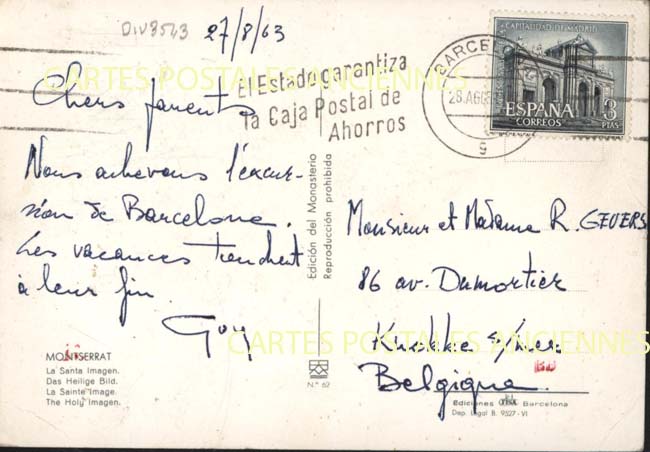 DIV8543
27/8/63
Chers parents
Nous achevons l'excur-
sion de Barcelone.
Les vacances touchent
à leur fin.
Guy
MONTSERRAT
La Santa Imagen.
Das Heilige Bild.
La Sainte Image.
The Holy Imagen.
El Estado garantiza
la Caja Postal de
Ahorros
BARCELO
28.AGO
9
CAPITALIDAD DE MADRID
ESPAÑA
CORREOS
3
PTAS
Edición del Monasterio
Reproducción prohibida
N.º 62
Monsieur et Madame R. GEVERS
86 av. Dumortier
Knokke s/mer
Belgique.
Ediciones Barcelona
Dep. Legal B. 9527-VI
CARTES POSTALES ANCIENNES
CARTES POSTALES ANCIENNES